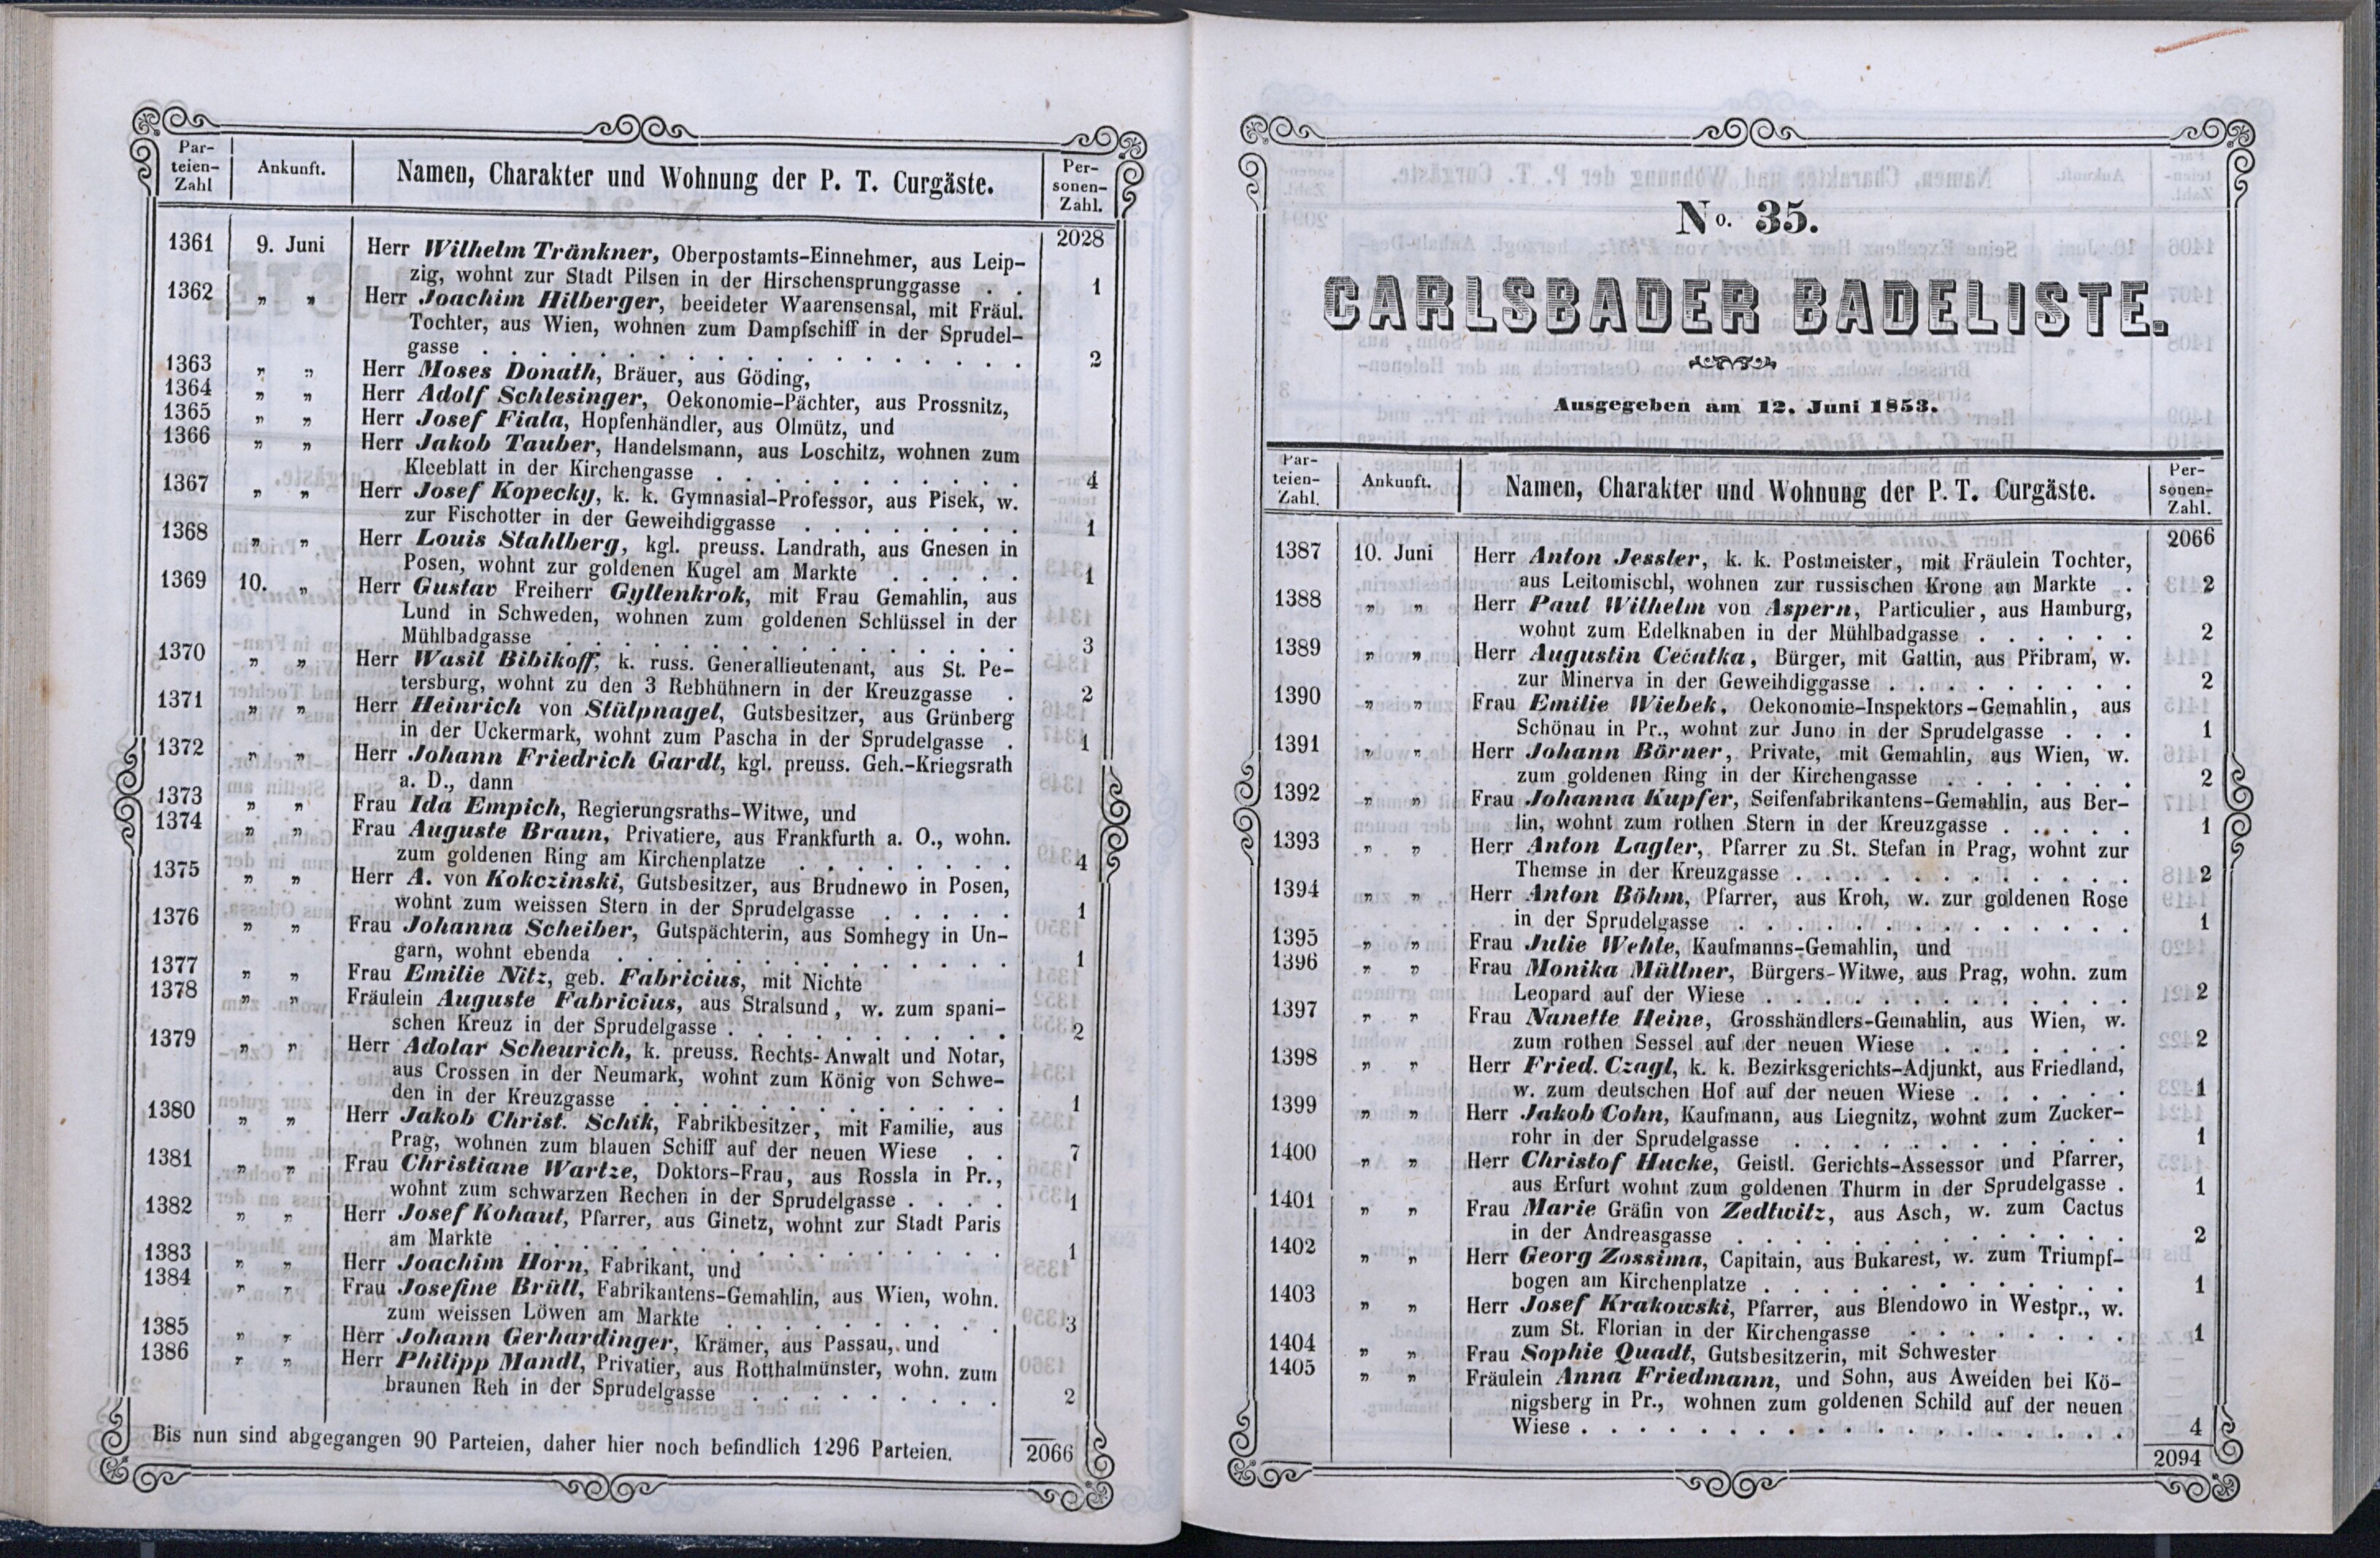 Par-
teien-
Zahl
Ankunft.
Namen, Charakter und Wohnung der P. T. Curgäste.
Per-
sonen-
Zahl.
2028
1361 9. Juni Herr Wilhelm Tränkner, Oberpostamts-Einnehmer, aus Leip-
zig, wohnt zur Stadt Pilsen in der Hirschensprunggasse . . 1
1362 „ „ Herr Joachim Hilberger, beeideter Waarensensal, mit Fräul.
Tochter, aus Wien, wohnen zum Dampfschiff in der Sprudel-
gasse . . . . . . . . . . . . . . . . . . . 2
1363 „ „ Herr Moses Donath, Bräuer, aus Göding,
1364 „ „ Herr Adolf Schlesinger, Oekonomie-Pächter, aus Prossnitz,
1365 „ „ Herr Josef Fiala, Hopfenhändler, aus Olmütz, und
1366 „ „ Herr Jakob Tauber, Handelsmann, aus Loschitz, wohnen zum
Kleeblatt in der Kirchengasse . . . . . . . . . . . 4
1367 „ „ Herr Josef Kopecky, k. k. Gymnasial-Professor, aus Pisek, w.
zur Fischotter in der Geweihdiggasse . . . . . . . . 1
1368 „ „ Herr Louis Stahlberg, kgl. preuss. Landrath, aus Gnesen in
Posen, wohnt zur goldenen Kugel am Markte . . . . . 1
1369 10. „ Herr Gustav Freiherr Gyllenkrok, mit Frau Gemahlin, aus
Lund in Schweden, wohnen zum goldenen Schlüssel in der
Mühlbadgasse . . . . . . . . . . . . . . . . 3
1370 „ „ Herr Wasil Bibikoff, k. russ. Generallieutenant, aus St. Pe-
tersburg, wohnt zu den 3 Rebhühnern in der Kreuzgasse . 2
1371 „ „ Herr Heinrich von Stülpnagel, Gutsbesitzer, aus Grünberg
in der Uckermark, wohnt zum Pascha in der Sprudelgasse . 1
1372 „ „ Herr Johann Friedrich Gardt, kgl. preuss. Geh.-Kriegsrath
a. D., dann
1373 „ „ Frau Ida Empich, Regierungsraths-Witwe, und
1374 „ „ Frau Auguste Braun, Privatiere, aus Frankfurth a. O., wohn.
zum goldenen Ring am Kirchenplatze . . . . . . . . 4
1375 „ „ Herr A. von Kokczinski, Gutsbesitzer, aus Brudnewo in Posen,
wohnt zum weissen Stern in der Sprudelgasse . . . . . 1
1376 „ „ Frau Johanna Scheiber, Gutspächterin, aus Somhegy in Un-
garn, wohnt ebenda . . . . . . . . . . . . . . 1
1377 „ „ Frau Emilie Nitz, geb. Fabricius, mit Nichte
1378 „ „ Fräulein Auguste Fabricius, aus Stralsund, w. zum spani-
schen Kreuz in der Sprudelgasse . . . . . . . . . . 2
1379 „ „ Herr Adolar Scheurich, k. preuss. Rechts-Anwalt und Notar,
aus Crossen in der Neumark, wohnt zum König von Schwe-
den in der Kreuzgasse . . . . . . . . . . . . . 1
1380 „ „ Herr Jakob Christ. Schik, Fabrikbesitzer, mit Familie, aus
Prag, wohnen zum blauen Schiff auf der neuen Wiese . . 7
1381 „ „ Frau Christiane Wartze, Doktors-Frau, aus Rossla in Pr.,
wohnt zum schwarzen Rechen in der Sprudelgasse . . . . 1
1382 „ „ Herr Josef Kohaut, Pfarrer, aus Ginetz, wohnt zur Stadt Paris
am Markte . . . . . . . . . . . . . . . . . 1
1383 „ „ Herr Joachim Horn, Fabrikant, und
1384 „ „ Frau Josefine Brüll, Fabrikantens-Gemahlin, aus Wien, wohn.
zum weissen Löwen am Markte . . . . . . . . . . 3
1385 „ „ Herr Johann Gerhardinger, Krämer, aus Passau, und
1386 „ „ Herr Philipp Mandl, Privatier, aus Rotthalmünster, wohn. zum
braunen Reh in der Sprudelgasse . . . . . . . . . . 2
Bis nun sind abgegangen 90 Parteien, daher hier noch befindlich 1296 Parteien. 2066
No. 35.
CARLSBADER BADELISTE.
Ausgegeben am 12. Juni 1853.
Par-
teien-
Zahl.
Ankunft.
Namen, Charakter und Wohnung der P. T. Curgäste.
Per-
sonen-
Zahl.
2066
1387 10. Juni Herr Anton Jessler, k. k. Postmeister, mit Fräulein Tochter,
aus Leitomischl, wohnen zur russischen Krone am Markte . 2
1388 „ „ Herr Paul Wilhelm von Aspern, Particulier, aus Hamburg,
wohnt zum Edelknaben in der Mühlbadgasse . . . . . . 2
1389 „ „ Herr Augustin Cećatka, Bürger, mit Gattin, aus Přibram, w.
zur Minerva in der Geweihdiggasse . . . . . . . . . 2
1390 „ „ Frau Emilie Wiebek, Oekonomie-Inspektors-Gemahlin, aus
Schönau in Pr., wohnt zur Juno in der Sprudelgasse . . . 1
1391 „ „ Herr Johann Börner, Private, mit Gemahlin, aus Wien, w.
zum goldenen Ring in der Kirchengasse . . . . . . . 2
1392 „ „ Frau Johanna Kupfer, Seifenfabrikantens-Gemahlin, aus Ber-
lin, wohnt zum rothen Stern in der Kreuzgasse . . . . . 1
1393 „ „ Herr Anton Lagler, Pfarrer zu St. Stefan in Prag, wohnt zur
Themse in der Kreuzgasse . . . . . . . . . . . . 2
1394 „ „ Herr Anton Böhm, Pfarrer, aus Kroh, w. zur goldenen Rose
in der Sprudelgasse . . . . . . . . . . . . . . 1
1395 „ „ Frau Julie Wehle, Kaufmanns-Gemahlin, und
1396 „ „ Frau Monika Müllner, Bürgers-Witwe, aus Prag, wohn. zum
Leopard auf der Wiese . . . . . . . . . . . . . 2
1397 „ „ Frau Nanette Heine, Grosshändlers-Gemahlin, aus Wien, w.
zum rothen Sessel auf der neuen Wiese . . . . . . . 2
1398 „ „ Herr Fried. Czagl, k. k. Bezirksgerichts-Adjunkt, aus Friedland,
w. zum deutschen Hof auf der neuen Wiese . . . . . . 1
1399 „ „ Herr Jakob Cohn, Kaufmann, aus Liegnitz, wohnt zum Zucker-
rohr in der Sprudelgasse . . . . . . . . . . . . 1
1400 „ „ Herr Christof Hucke, Geistl. Gerichts-Assessor und Pfarrer,
aus Erfurt wohnt zum goldenen Thurm in der Sprudelgasse . 1
1401 „ „ Frau Marie Gräfin von Zedtwitz, aus Asch, w. zum Cactus
in der Andreasgasse . . . . . . . . . . . . . . 2
1402 „ „ Herr Georg Zossima, Capitain, aus Bukarest, w. zum Triumpf-
bogen am Kirchenplatze . . . . . . . . . . . . . 1
1403 „ „ Herr Josef Krakowski, Pfarrer, aus Blendowo in Westpr., w.
zum St. Florian in der Kirchengasse . . . . . . . . 1
1404 „ „ Frau Sophie Quadt, Gutsbesitzerin, mit Schwester
1405 „ „ Fräulein Anna Friedmann, und Sohn, aus Aweiden bei Kö-
nigsberg in Pr., wohnen zum goldenen Schild auf der neuen
Wiese . . . . . . . . . . . . . . . . . . . 4
2094